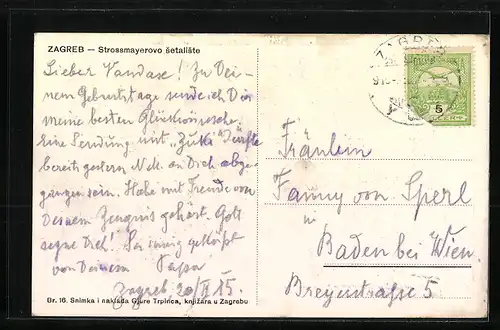 ZAGREB — Strossmayerovo šetalište
Lieber ! Zu Dei-
nem Geburtstage sende ich Dir
meine besten Glückwünsche.
Eine Sendung mit „ " dürfte
bereits gestern Nm. an Dich abge-
gangen sein. Habe mit Freude von
Deinem Zeugnis gehört. Gott
segne Dich! Sei innig geküsst
von Deinem Papa
Zagreb 15.
Br. 16. Snimka i naklada Gjure Trpinca, knjižara u Zagrebu
ZAGREB
5
Fräulein
Fanny von Sperl
in
Baden bei Wien
Breyerstraße 5